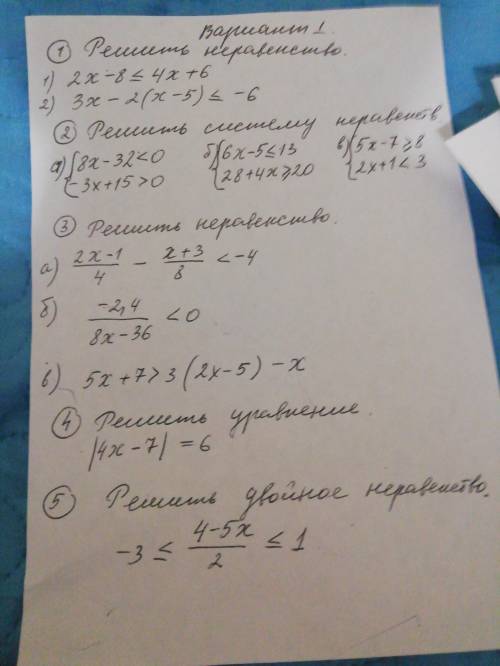 Вариант 1.
① Решить неравенство.
1) 2x-8 ≤ 4x+6
2) 3x - 2(x-5) ≤ -6
② Решить систему неравенств
а) { 8x-32<0 б) { 6x-5≤13 в) { 5x-7≥8
-3x+15>0 28+4x≥20 2x+1<3
③ Решить неравенство.
а) (2x-1)/4 - (x+3)/8 < -4
б) -2,4/(8x-36) < 0
в) 5x+7>3(2x-5)-x
④ Решить уравнение.
|4x-7| = 6
⑤ Решить двойное неравенство.
-3 ≤ (4-5x)/2 ≤ 1